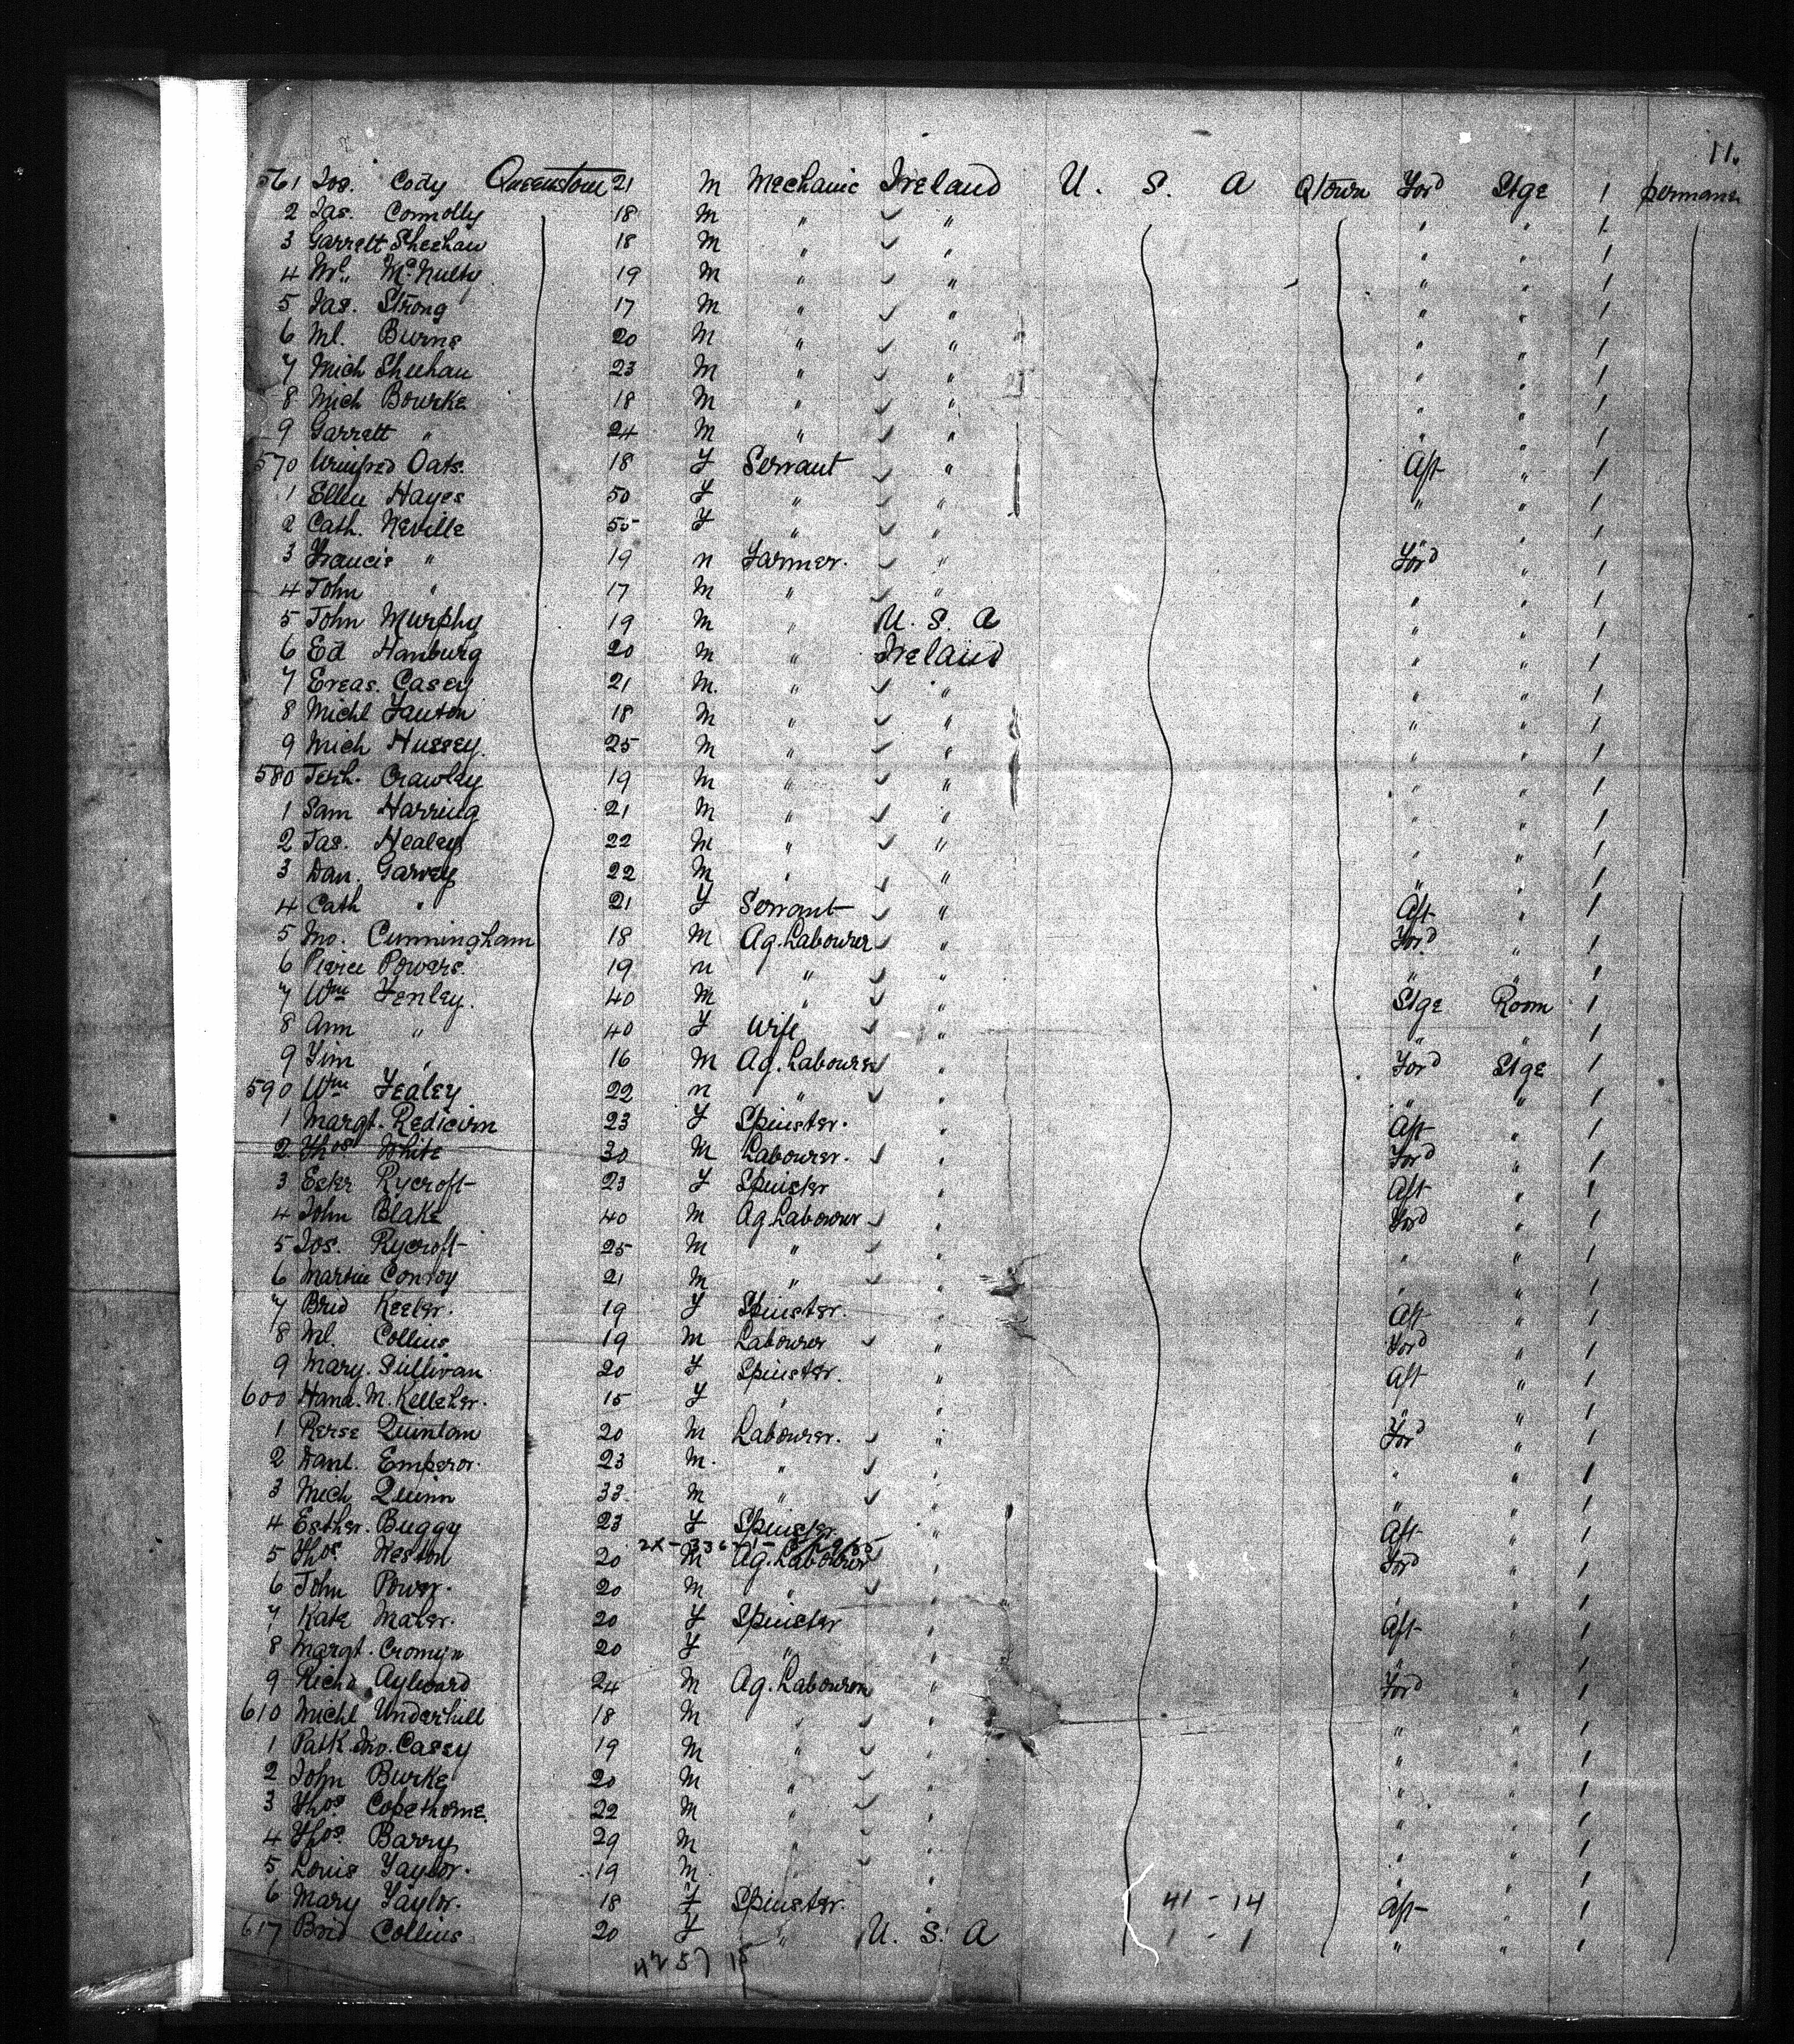 11.
561 Jos. Cody Queenstown 21 M Mechanic Ireland U. S. A Qtown Ford Stge 1 permanen
2 Jas. Connolly 18 M " " " " 1
3 Garrett Sheehan 18 M " " " " 1
4 Wm. McNulty 19 M " " " " 1
5 Jas. Strong 17 M " " " " 1
6 Ml. Burns 20 M " " " " 1
7 Mich Sheehan 23 M " " " " 1
8 Mich Bourke 18 M " " " " 1
9 Garrett " 24 M " " " " 1
570 Winifred Oats. 18 F Servant " Aft " 1
1 Ellen Hayes 50 F " " " " 1
2 Cath. Neville 55 F " " " " 1
3 Francis " 19 m Farmer. " Ford " 1
4 John " 17 M " " " " 1
5 John Murphy 19 M " U. S. A " " 1
6 Ed Hanburg 20 M " Ireland " " 1
7 Casey 21 M. " " " " 1
8 Michl Fanton 18 M " " " " 1
9 Mich Hussey. 25 M " " " " 1
580 Jerh. Crawley 19 M " " " " 1
1 Sam Harring 21 M " " " " 1
2 Jas. Healey 22 M " " " " 1
3 Dan. Garvey 22 M " " " " 1
4 Cath " 21 F Servant " Aft " 1
5 Jno. Cunningham 18 M Ag. Labourer " Ford " 1
6 Pierce Powers. 19 m " " " " 1
7 Wm Fenley. 40 M " " Stge Room 1
8 Ann " 40 F Wife " " " 1
9 Tim " 16 M Ag. Labourer " Ford Stge 1
590 Wm Fealey 22 m " " " " 1
1 Margt. 23 F Spinster. " Aft " 1
2 Thos White 30 M Labourer. " Ford " 1
3 Ester Rycroft 23 F Spinster " Aft " 1
4 John Blake 40 M Ag Labourer " Ford " 1
5 Jos. Rycroft 25 M " " " " 1
6 Martin Conroy 21 M " " " " 1
7 Brid Keeler. 19 F Spinster. " Aft " 1
8 Ml. Collins 19 M Labourer " Ford " 1
9 Mary. Sullivan 20 F Spinster. " Aft " 1
600 Hana. M. Kelleher. 15 F " " " " 1
1 Quinlan 20 M Labourer. " Ford " 1
2 Danl. Emperor. 23 M. " " " " 1
3 Mich Quinn 33 M " " " " 1
4 Esther. Buggy 23 F Spinster. " Aft " 1
5 Thos Neston 20 M Ag. Labourer " Ford " 1
6 John Power. 20 M " " " " 1
7 Kate Maher. 20 F Spinster " Aft " 1
8 Margt. Cromyn 20 F " " " " 1
9 Richd Aylward 24 M Ag. Labourer " Ford " 1
610 Michl Underhill 18 M " " " " 1
1 Patk. Jno. Casey 19 M " " " " 1
2 John Burke 20 M " " " " 1
3 Thos. Copethorne. 22 M " " " " 1
4 Thos. Barry 29 M " " " " 1
5 Louis Taylor. 19 M. " " " " 1
6 Mary Taylor. 18 F Spinster. " 41 - 14 Aft " 1
617 Brid Collins 20 F " U. S. A 1 - 1 " " 1
42 57 15